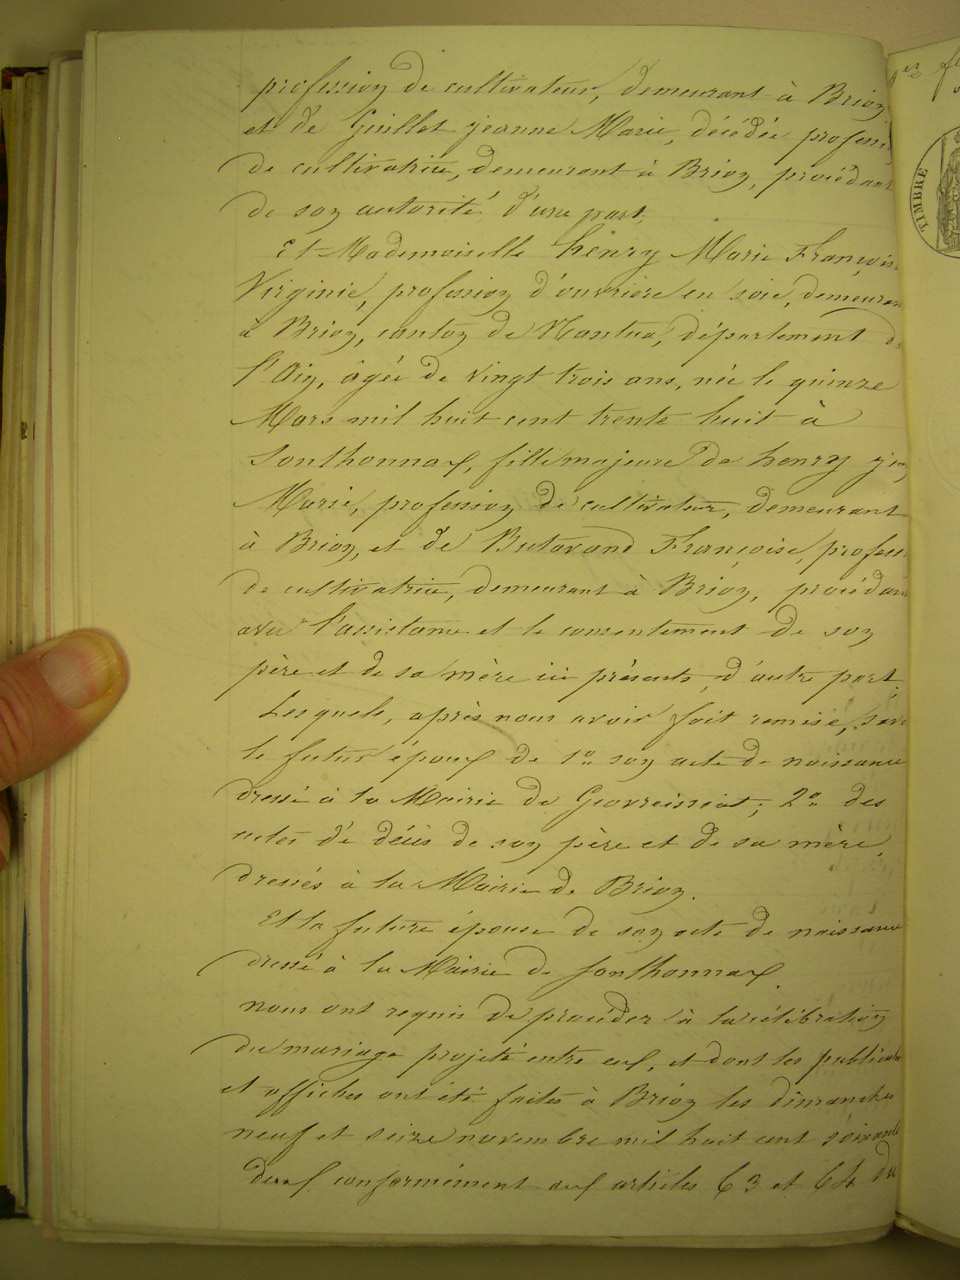 profession de cultivateur, demeurant à Brion
et de Guillot jeanne Marie, décédée professi
de cultivatrice, demeurant à Brion, procédant
de son autorité d'une part,
Et Mademoiselle henry Marie François
Virginie, profession d'ouvrière en soie, demeuran
à Brion, canton de Nantua, département de
l'Ain, âgée de vingt trois ans, née le quinze
Mars mil huit cent trente huit à
Sonthonnax, fille majeure de henry jean
Marie, profession de cultivateur, demeurant
à Brion, et de Butavand Françoise, profess
de cultivatrice, demeurant à Brion, procédan
avec l'assistance et le consentement de son
père et de sa mère ici présents, d'autre part;
Lesquels, après nous avoir fait remise, savo
le futur époux de 1º son acte de naissance
dressé à la Mairie de Geovreissiat; 2º des
actes de décès de son père et de sa mère,
dressés à la Mairie de Brion.
Et la future épouse de son acte de naissance
dressé à la Mairie de Sonthonnax
nous ont requis de procéder à la célébration
du mariage projeté entre eux, et dont les publicat
et affiches ont été faites à Brion les dimanches
neuf et seize novembre mil huit cent soixante
deux conformément aux articles 63 et 64 du
TIMBRE